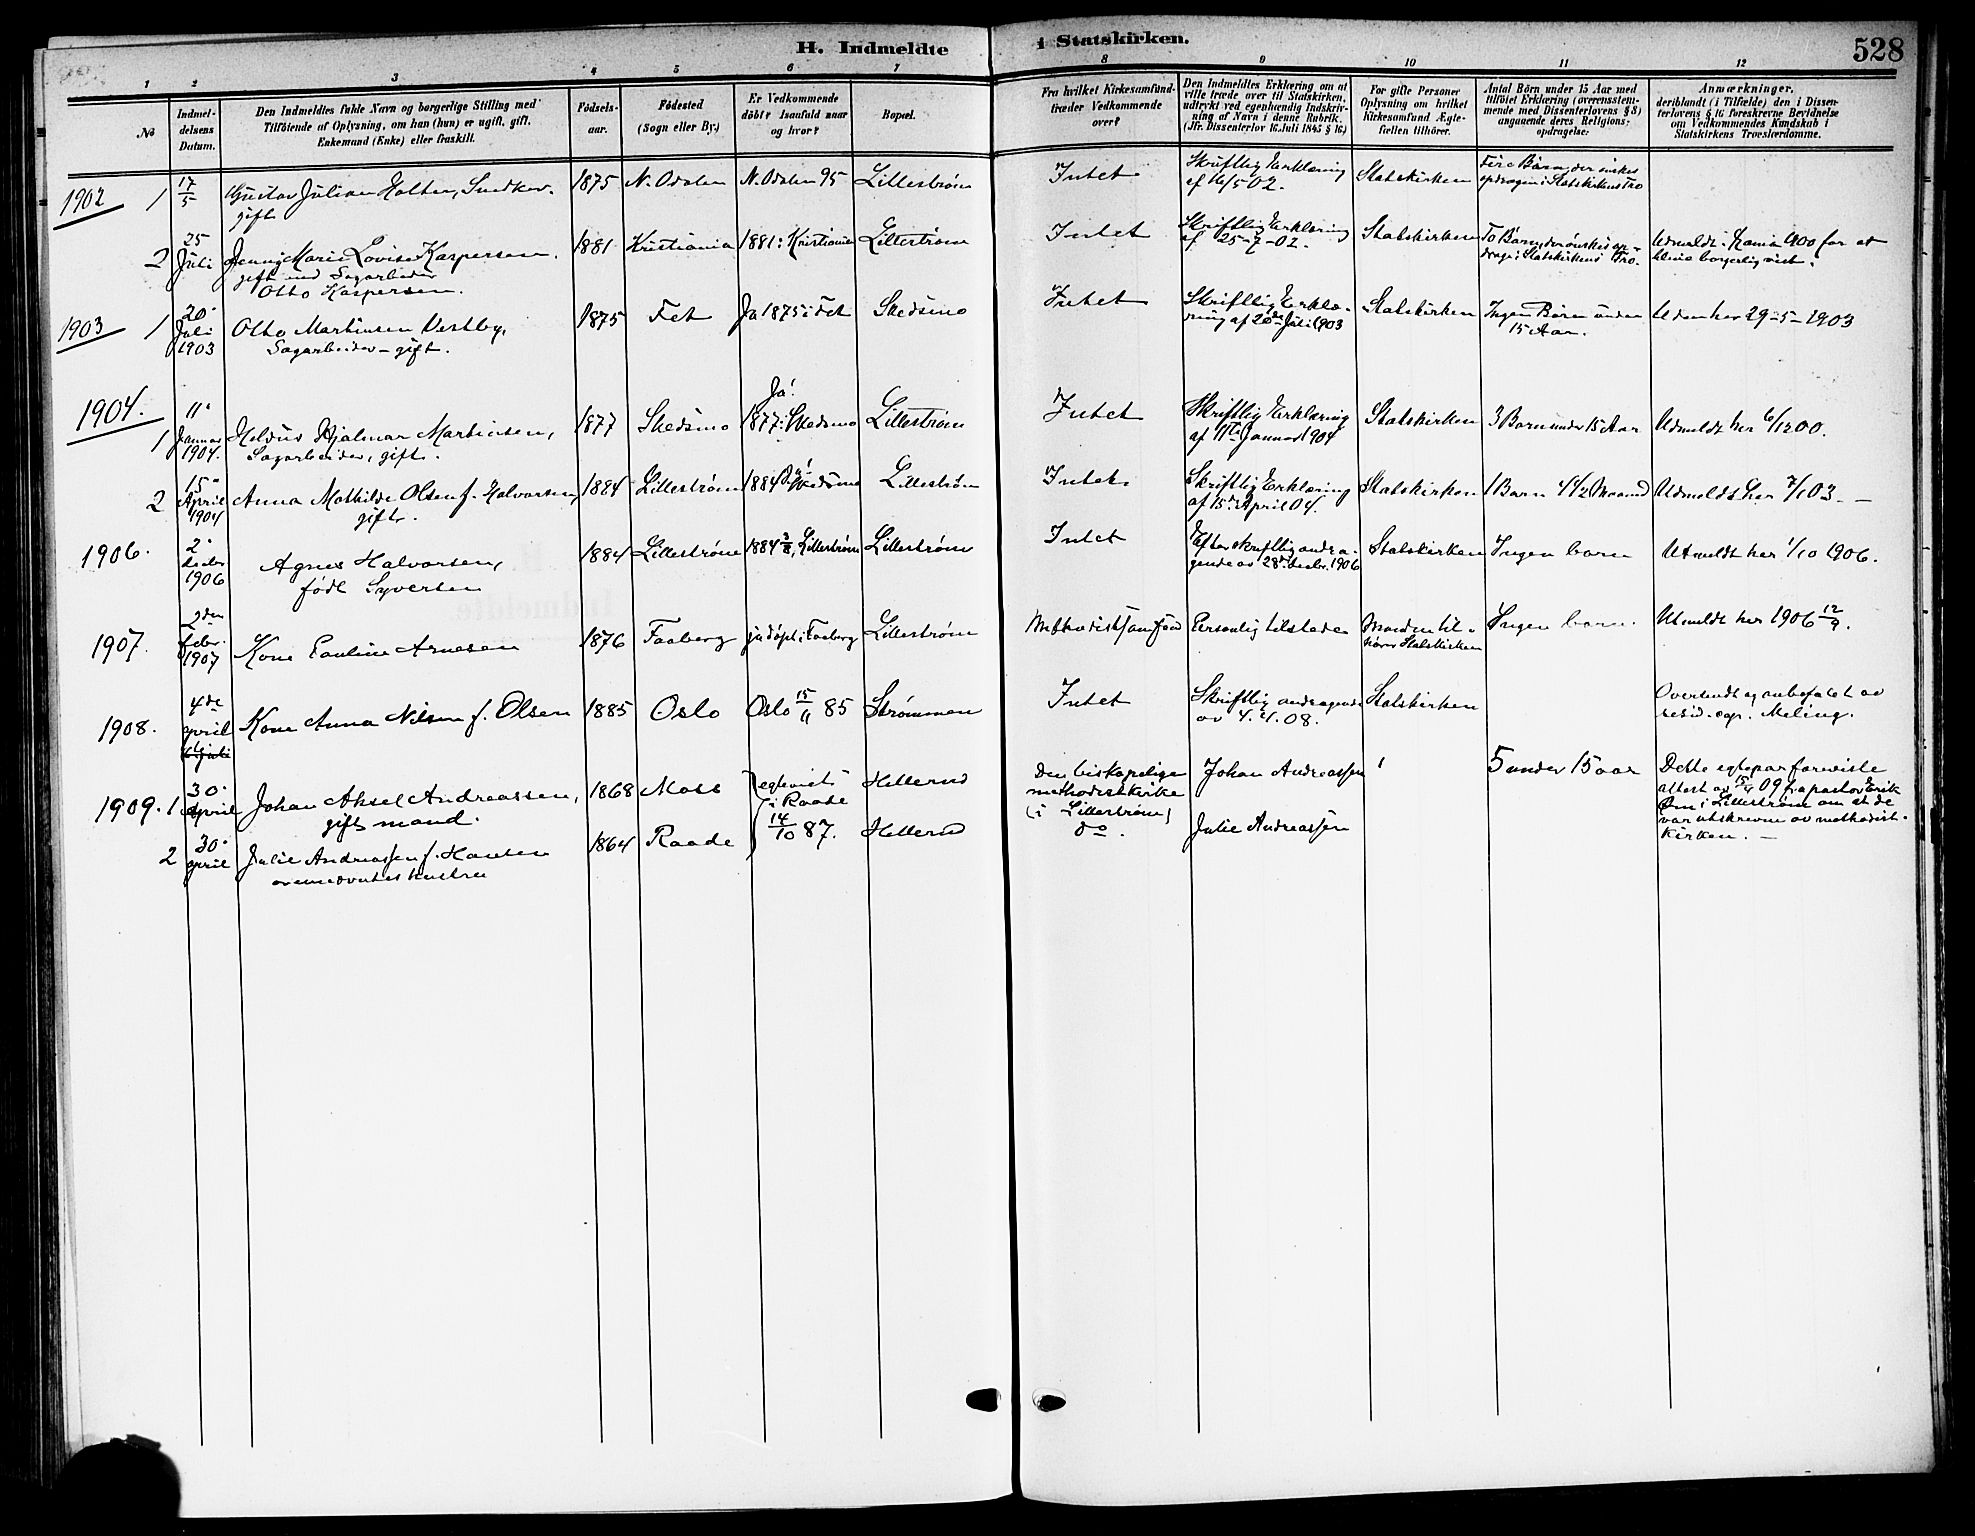 H. Indmeldte i Statskirken.
528
1 2 3 4 5 6 7 8 9 10 11 12
No
Indmel-
delsens
Datum.
Den Indmeldtes fulde Navn og borgerlige Stilling med
Tilföiende af Oplysning, om han (hun) er ugift, gift,
Enkemand (Enke) eller fraskilt.
Födsels-
aar.
Födested
(Sogn eller By.)
Er Vedkommende
döbt? Isaafald naar
og hvor?
Bopæl.
Fra hvilket Kirkesamfund
træder Vedkommende
over?
Den Indmeldtes Erklæring om at
ville træde over til Statskirken,
udtrykt ved egenhændig Indskriv-
ning af Navn i denne Rubrik.
(Jfr. Dissenterlov 16. Juli 1845 § 16.)
For gifte Personer
Oplysning om hvilket
Kirkesamfund Ægte-
fællen tilhörer.
Antal Börn under 15 Aar med
tilföiet Erklæring (overensstem-
mende med Dissenterlovens § 8)
angaaende deres Religions-
opdragelse.
Anmærkninger,
deriblandt (i Tilfælde) den i Dissen-
terlovens § 16 foreskrevne Bevidnelse
om Vedkommendes Kundskab i
Statskirkens Troeslærdomme.
1902 1 17/5 Gustav Julian Holter, Snedker. 1875 N. Odalen N. Odalen 95 Lillestrøm
gift
Intet
Skriftlig Erklæring
af 16/5 02.
Statskirken
Fire Børn, der ønskes
opdragen i Statskirkens Tro
2 25 Juli Jenny Marie Lovise Kaspersen. 1881 Kristiania 1881: Kristiania Lillestrøm
gift med Sagarbeider
Otto Kaspersen.
Intet
Skriftlig Erklæring
af 25-7-02.
Statskirken
To Børn, der ønskes op-
drage i Statskirkens Tro.
Udmeldt 1900 for at
blive borgerlig viet.
1903 1 20' Juli 1903 Otto Martinsen Vestby, 1875 Fet Ja 1875 i Fet Skedsmo
Sagarbeider - gift.
Intet
Skriftlig Erklæ-
ring af 20de Juli 1903
Statskirken
Ingen Børn under
15 Aar.
Ud den her 29-5-1903
1904. 1 11' Januar 1904. Hjalmar Martinsen, 1877 Skedsmo Ja! 1877: Skedsmo Lillestrøm
Sagarbeider, gift.
Intet
Skriftlig Erklæring
af 11te Januar 1904
Statskirken
3 Barn under 15 Aar
Udmeldt her 6/12 00.
2 15' April 1904 Anna Mathilde Olsen f. Halvorsen, 1884 Lillestrøm Ja! 1884 Skedsmo Lillestrøm
gift.
Intet.
Skriftlig Erklæring
af 15' April 04.
Statskirken
1 Barn 4 1/2 Maaned
Udmeldt her 7/1 03. —
1906. 2' decbr 1906 Agnes Halvorsen, 1884 Lillestrøm 1884 3/8, Lillestrøm Lillestrøm
født Syversen
Intet
Efter skriftlig andra-
gende av 28' decbr. 1906
Statskirken
Ingen barn
Utmeldt her 1/10 1906.
1907. 2den febr. 1907 Kone Pauline Arnesen 1876 Faaberg ja døpt i Faaberg Lillestrøm
Methodistsamfund
Personlig tilstede
Manden til-
hører Statskirken
Ingen barn.
Utmeldt her 1906 12/9.
1908. 4de april Kone Anna Nilsen f. Olsen 1885 Oslo Oslo 15/11 85 Strømmen
Intet
Skriftlig andragende
av 4.4.08.
Statskirken
Oversendt og anbefalet av
resid. cap. Meling.
1909. 1 30' April Johan Aksel Andreassen, 1868 Moss egteviet i Raade 14/10 87. Hellerud
gift mand.
Den biskopelige
methodistkirke
(i Lillestrøm)
Johan Andreassen
5 under 15 aar
Dette egtepar foreviste
attest av 15/4 09 fra pastor Erik
Øen i Lillestrøm om at de
var utskrevne av methodist-
kirken. —
2 30' april Julie Andreassen f. Hansen 1864 Raade Hellerud
ovennævntes hustru
do.
Julie Andreassen